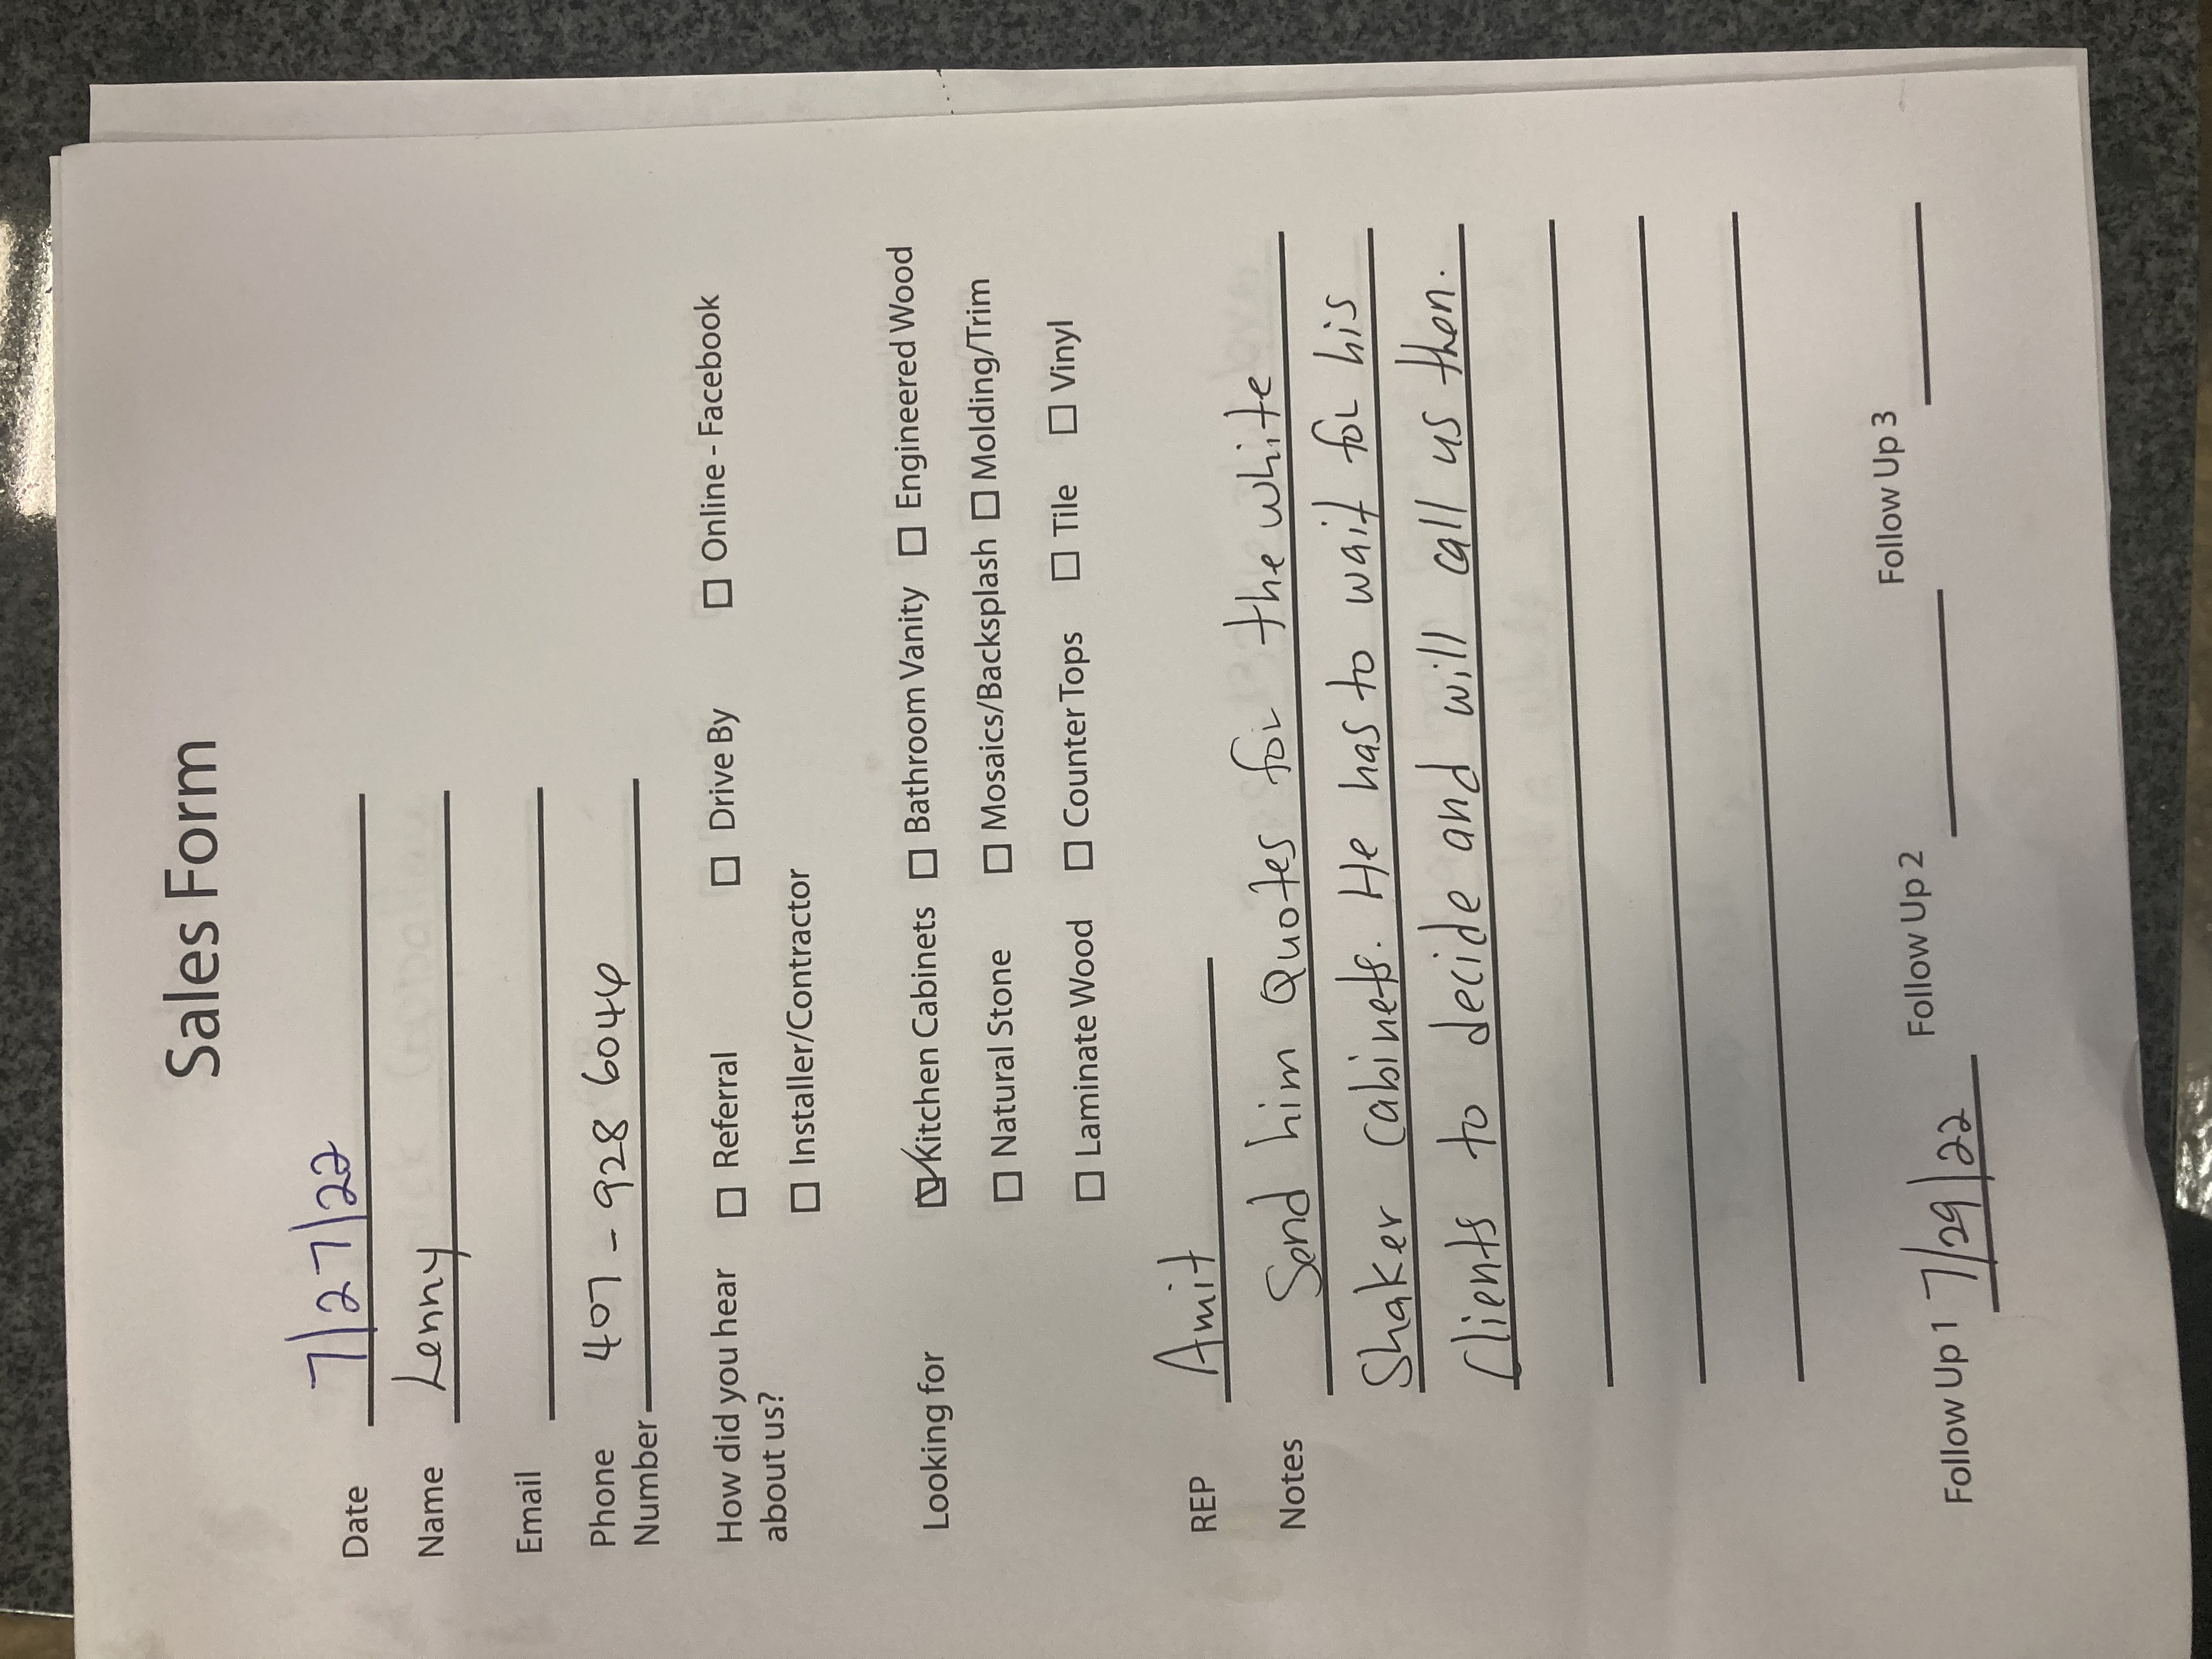 Sales Form
Date 7/27/22
Name Lenny
Email
Phone
Number 407-928 6044
How did you hear
about us? ☐ Referral ☐ Drive By ☐ Online - Facebook
☐ Installer/Contractor
Looking for ☑ Kitchen Cabinets ☐ Bathroom Vanity ☐ Engineered Wood
☐ Natural Stone ☐ Mosaics/Backsplash ☐ Molding/Trim
☐ Laminate Wood ☐ Counter Tops ☐ Tile ☐ Vinyl
REP Amit
Notes Send him Quotes for the white
Shaker Cabinets. He has to wait for his
Clients to decide and will call us then.
Follow Up 1 7/29/22 Follow Up 2 Follow Up 3